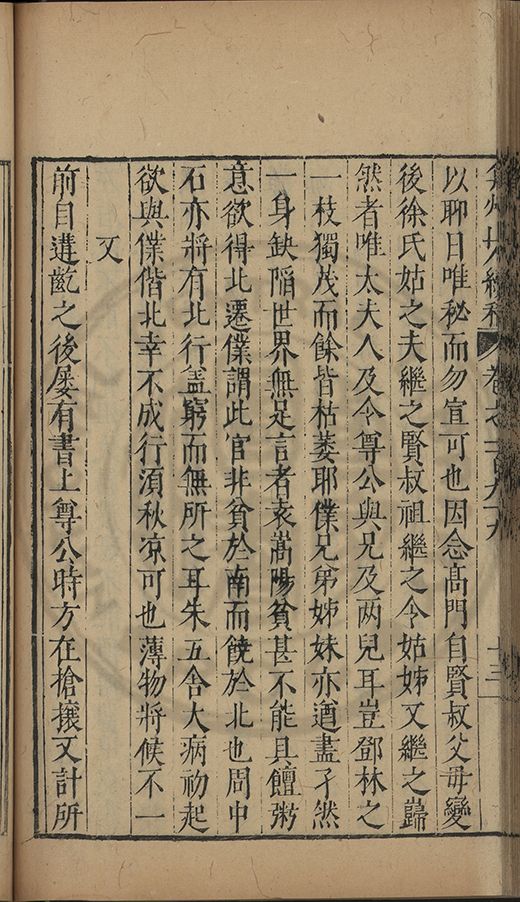 弇州山人續稿 卷之一百九十九 十三
以聊日唯秘而勿宣可也因念髙門自賢叔父毋變
後徐氏姑之夫繼之賢叔祖繼之令姑姊又繼之巋
然者唯太夫人及令尊公與兄及两兒耳豈鄧林之
一枝獨茂而餘皆枯萎耶僕兄弟姊妹亦遒盡孑然
一身缺陷世界無足言者袁萬陽貧甚不能具饘粥
意欲得北遷僕謂此官非貧於南而饒於北也周中
石亦將有北行盖窮而無所之耳朱五舍大病初起
欲與僕偕北幸不成行湏秋凉可也薄物將候不一
又
前自遘齕之後屡有書上尊公時方在搶攘又計所